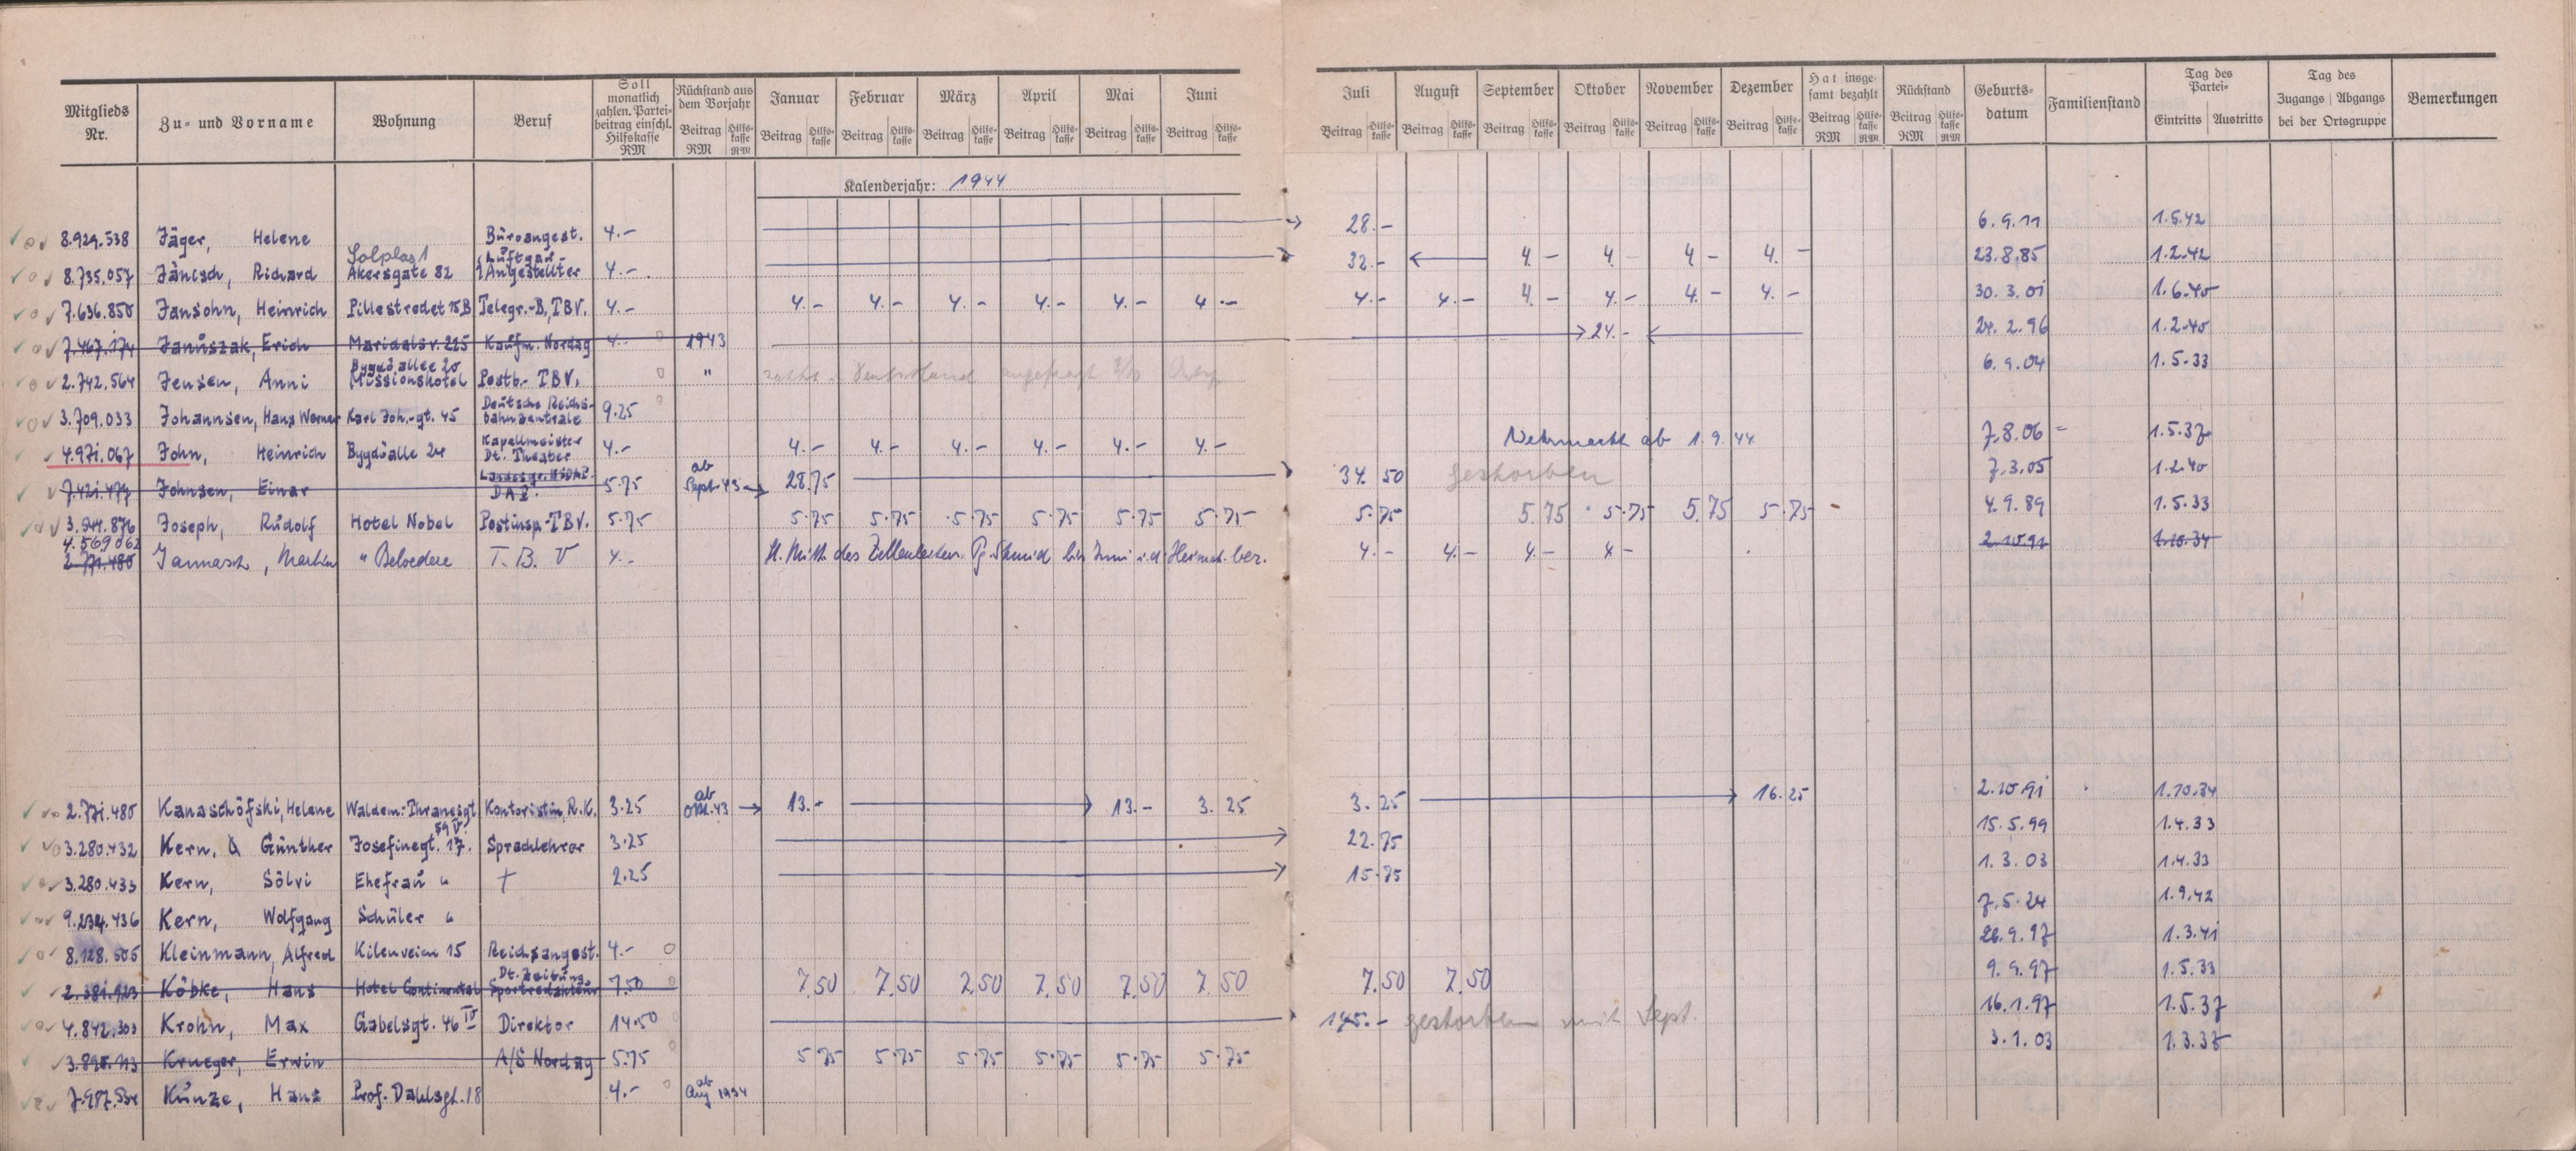 Mitglieds Nr. | Zu- und Vorname | Wohnung | Beruf | Soll monatlich zahlen. Partei-beitrag einschl. Hilfskasse RM | Rückstand aus dem Vorjahr Beitrag RM Hilfs-kasse RM | Januar Beitrag Hilfs-kasse | Februar Beitrag Hilfs-kasse | März Beitrag Hilfs-kasse | April Beitrag Hilfs-kasse | Mai Beitrag Hilfs-kasse | Juni Beitrag Hilfs-kasse | Juli Beitrag Hilfs-kasse | August Beitrag Hilfs-kasse | September Beitrag Hilfs-kasse | Oktober Beitrag Hilfs-kasse | November Beitrag Hilfs-kasse | Dezember Beitrag Hilfs-kasse | Hat insge-samt bezahlt Beitrag RM Hilfs-kasse RM | Rückstand Beitrag RM Hilfs-kasse RM | Geburts-datum | Familienstand | Tag des Partei- Eintritts Austritts | Tag des Zugangs Abgangs bei der Ortsgruppe | Bemerkungen
Kalenderjahr: 1944
8.929.538 Jäger, Helene Büroangest. 4.- 28.- 6.9.11 1.5.42
8.735.057 Jänisch, Richard Solplas 1 Akersgate 82 Luftgau Angestellter 4.- 32.- 4.- 4.- 4.- 4.- 23.8.85 1.2.42
7.636.850 Jansohn, Heinrich Pillestredet 15B Telegr.-B. TBV. 4.- 4.- 4.- 4.- 4.- 4.- 4.- 4.- 4.- 4.- 4.- 4.- 4.- 30.3.01 1.6.40
7.467.174 Januszak, Erich Maridalsv. 225 Kaufm. Nordag 4.- 1943 24.- 24.2.96 1.2.40
2.742.564 Jensen, Anni Bygdö allee 20 Missionshotel Postb.- TBV. " Deutschland angefragt 6.9.04 1.5.33
3.709.033 Johannsen, Hans Werner Karl Joh.-gt. 45 Deutsche Reichs-bahnzentrale 9.25
4.971.067 John, Heinrich Bygdöalle 24 Kapellmeister Dt. Theater 4.- 4.- 4.- 4.- 4.- 4.- 4.- Wehrmacht ab 1.9.44 7.8.06 1.5.37
7.421.477 Johnsen, Einar Landesgr. NSDAP. DAF. 5.75 ab Sept. 43 28.75 34.50 gestorben 7.3.05 1.2.40
3.944.876 Joseph, Rudolf Hotel Nobel Postinsp.-TBV. 5.75 5.75 5.75 5.75 5.75 5.75 5.75 5.75 5.75 5.75 5.75 5.75 4.9.89 1.5.33
4.569.062
2.771.480 Jannasch, Martin " Belvedere T.B.V 4.- lt. Mitt. des Zellenleiters Pg. Schmid bis Juni i.d. Heimat bez. 4.- 4.- 4.- 4.- 2.10.91 1.10.34
2.771.480 Kanaschöfski, Helene Waldem. Thranesgt 59 IV. Kontoristin, R.K. 3.25 ab Okt. 43 13.- 13.- 3.25 3.25 16.25 2.10.91 1.10.34
3.280.432 Kern, Günther Josefinegt. 17. Sprachlehrer 3.25 22.75 15.5.99 1.4.33
3.280.433 Kern, Sölvi Ehefrau " 2.25 15.75 1.3.03 1.4.33
9.234.436 Kern, Wolfgang Schüler " 7.5.24 1.9.42
8.128.505 Kleinmann, Alfred Kilenveien 15 Reichsangest. 4.- 26.9.17 1.3.41
2.381.923 Köbke, Hans Hotel Continental Dt. Zeitung Sportredakteur 7.50 7.50 7.50 7.50 7.50 7.50 7.50 7.50 7.50 9.9.97 1.5.33
4.842.303 Krohn, Max Gabelsgt. 46 IV Direktor 14.50 145.- gestorben mit Sept. 16.1.97 1.5.37
3.895.113 Krueger, Erwin A/S Nordag 5.75 5.75 5.75 5.75 5.75 5.75 5.75 3.1.03 1.3.33
7.987.534 Kunze, Hans Prof. Dahlsgt. 18 4.- ab Aug 1934